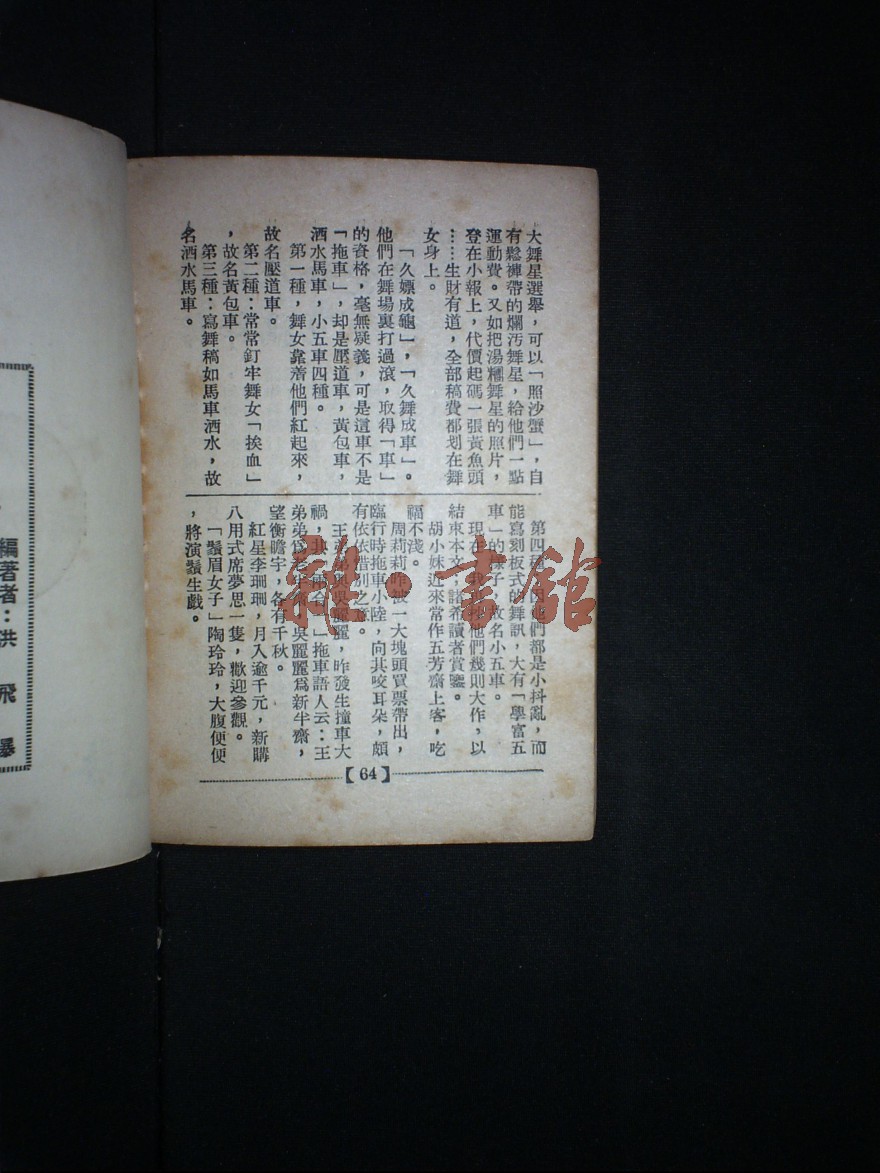 大舞星選舉，可以「照沙蟹」，自
有鬆褲帶的爛汚舞星，給他們一點
運動費。又如把湯糰舞星的照片，
登在小報上，代價起碼一張黃魚頭
……生財有道，全部稿費都划在舞
女身上。
「久嫖成龜」，「久舞成車」。
他們在舞場裏打過滾，取得「車」
的資格，毫無疑義，可是這車不是
「拖車」，却是壓道車，黃包車，
洒水馬車，小五車四種。
第一種，舞女靠着他們紅起來，
故名壓道車。
第二種：常常釘牢舞女「挨血」
，故名黃包車。
第三種：寫舞稿如馬車洒水，故
名洒水馬車。
第四種：因他們都是小抖亂，而
能寫刻板式的舞訊，大有「學富五
車」的樣子，故名小五車。
現在，我 他們幾則大作，以
結束本文，諸希讀者賞鑒。
胡小妹近來常作五芳齋上客，吃
福不淺。
周莉莉昨被一大塊頭買票帶出，
臨行時拖車小陸，向其咬耳朵，頗
有依依惜別之意。
王弟弟與吳麗麗，昨發生撞車大
禍，拖車語人云：王
弟弟爲老半齋，吳麗麗爲新半齋，
望衡瞻宇，各有千秋。
紅星李珊珊，月入逾千元，新購
八用式席夢思一隻，歡迎參觀。
「鬚眉女子」陶玲玲，大腹便便
，將演鬚生戲。
【64】
編著者：洪 飛
雜·書館